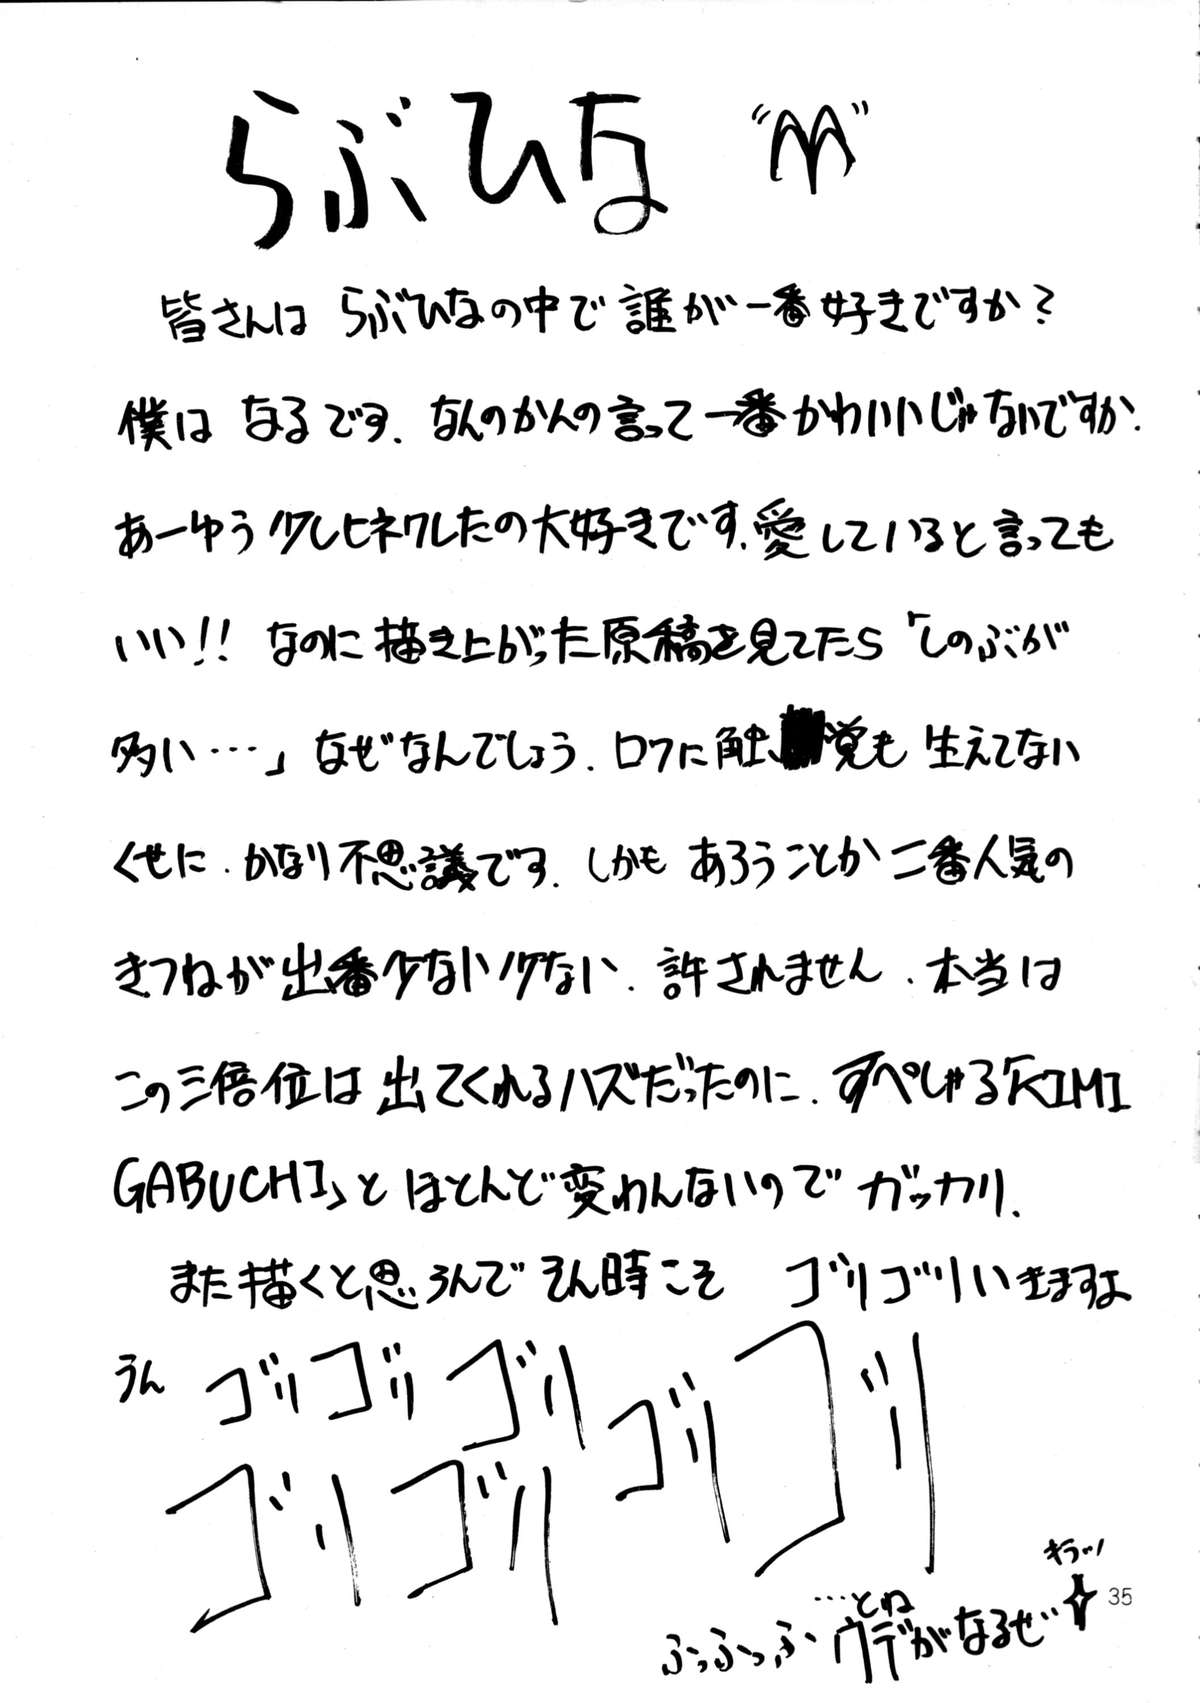 らぶひな
皆さんは らぶひなの中で 誰が一番好きですか?
僕は なるです. なんのかんの言って一番かわいいじゃないですか.
あーゆう少しヒネクレたの大好きです. 愛していると言っても
いい!! なのに描き上がった原稿を見てたら「しのぶが
多い…」なぜなんでしょう. ロクに触覚も生えてない
くせに. かなり不思議です. しかも あろうことか 二番人気の
きつねが出番少ない少ない. 許されません. 本当は
この三倍位は出てくれるハズだったのに. すぺしゃる「KIMI
GABUCHI」とほとんど変わんないのでガッカリ.
また描くと思うんでそん時こそ ゴリゴリいきますよ
うん ゴリ ゴリ ゴリ ゴリ ゴリ
ゴリ ゴリ
キラッ
35
…とね
ふっふっふ ウデがなるぜ